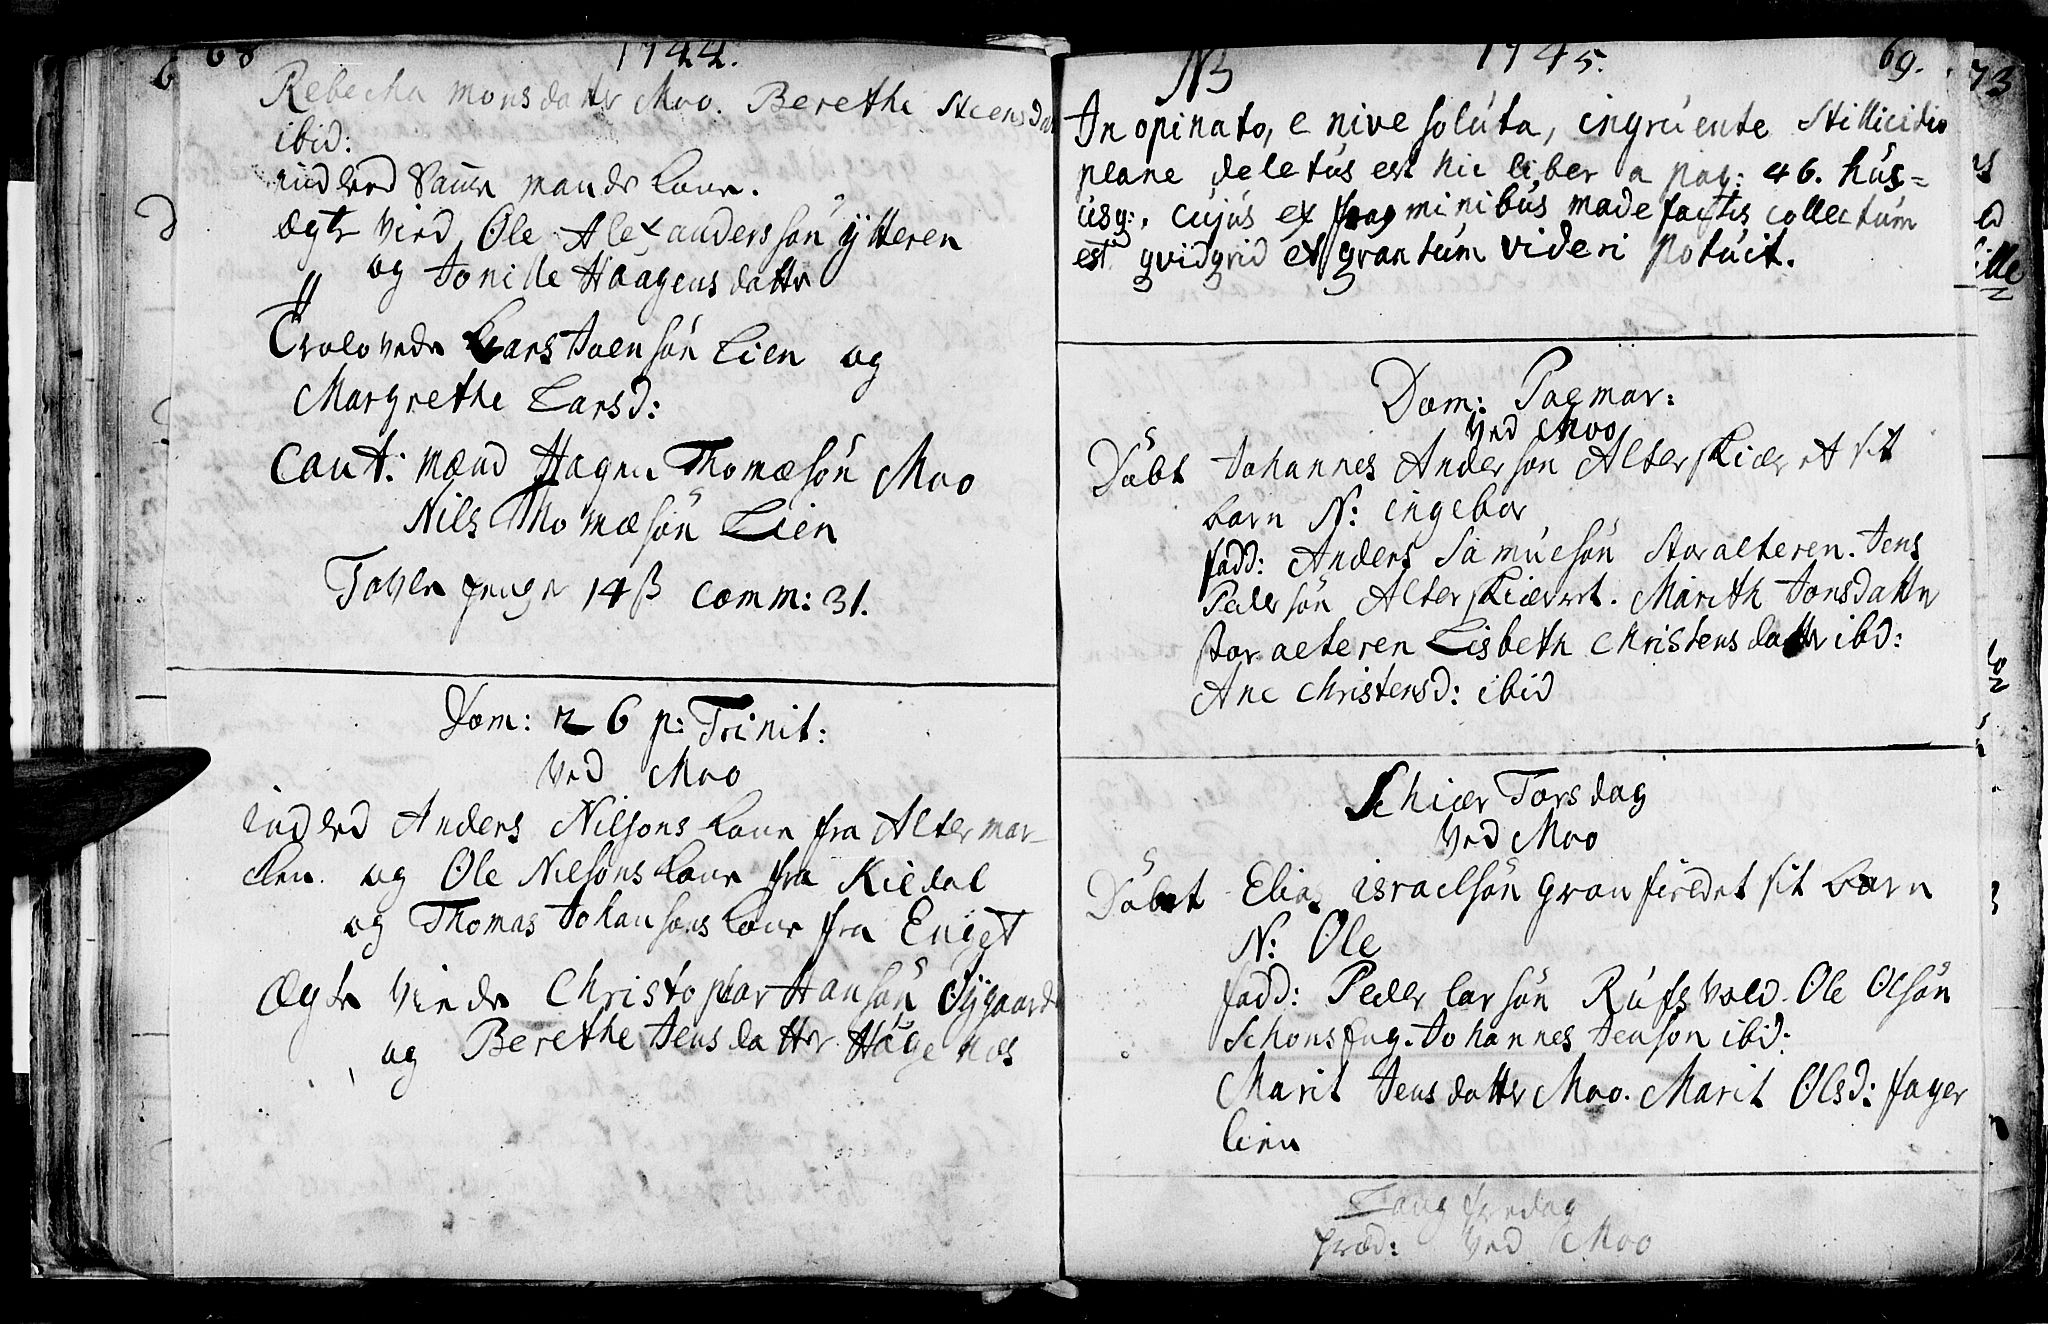 68 1744.
Rebecha Monsdatter Moo. Berethe Steensdat
ibid:
indled samme mands kone.
Ægte vied Ole Alexandersøn ytteren
" og Tonille Haagensdatter
Trolovede Lars Joensøn Lien og
Margrethe Larsd:
Caut: mænd Hagen Thomæsøn Moo
Nils Thomæsøn Lien
Tavle penge 14 ß Comm: 31.
Dom: 26 p: Trinit:
Ved Moo
indled Anders Nilsons kone fra Alter mar-
ken og Ole Nilsøns kone fra Kildal
og Thomas Johansøns kone fra Enget
Ægte viede Christophor Hansøn Øygaard
og Berethe Jensdatter Hage næs
NB 1745. 69.
Inopinato, e nive solúta, ingrúente stillicidio
plane deletús est hic liber a pag: 46. húc=
úsq:, cujús ex fragminibús madefactis collectúm
est qvidqvid et qvantúm videri potúit.
Dom: Palmar:
Ved Moo
Døbt Johannes Andersøn Alterskiæret sit
barn N: ingebor
fadd: Anders Samúelsøn Storalteren. Jens
Pedersøn Alterskiæret. Marith Jonsdatter
Storalteren Lisbeth Christensdatter ibd:
Ane Christensd: ibid
Schiær Torsdag
Ved Moo
Døbt Elias israelsøn granfieldet sit barn
N: Ole
fadd: Peder Larsøn Rúfsvold. Ole Olsøn
Schonseng. Johannes Jensøn ibid:
Marit Jensdatter Moo. Marit Olsd: fager
lien
Lang fredag
præd: Ved Moo